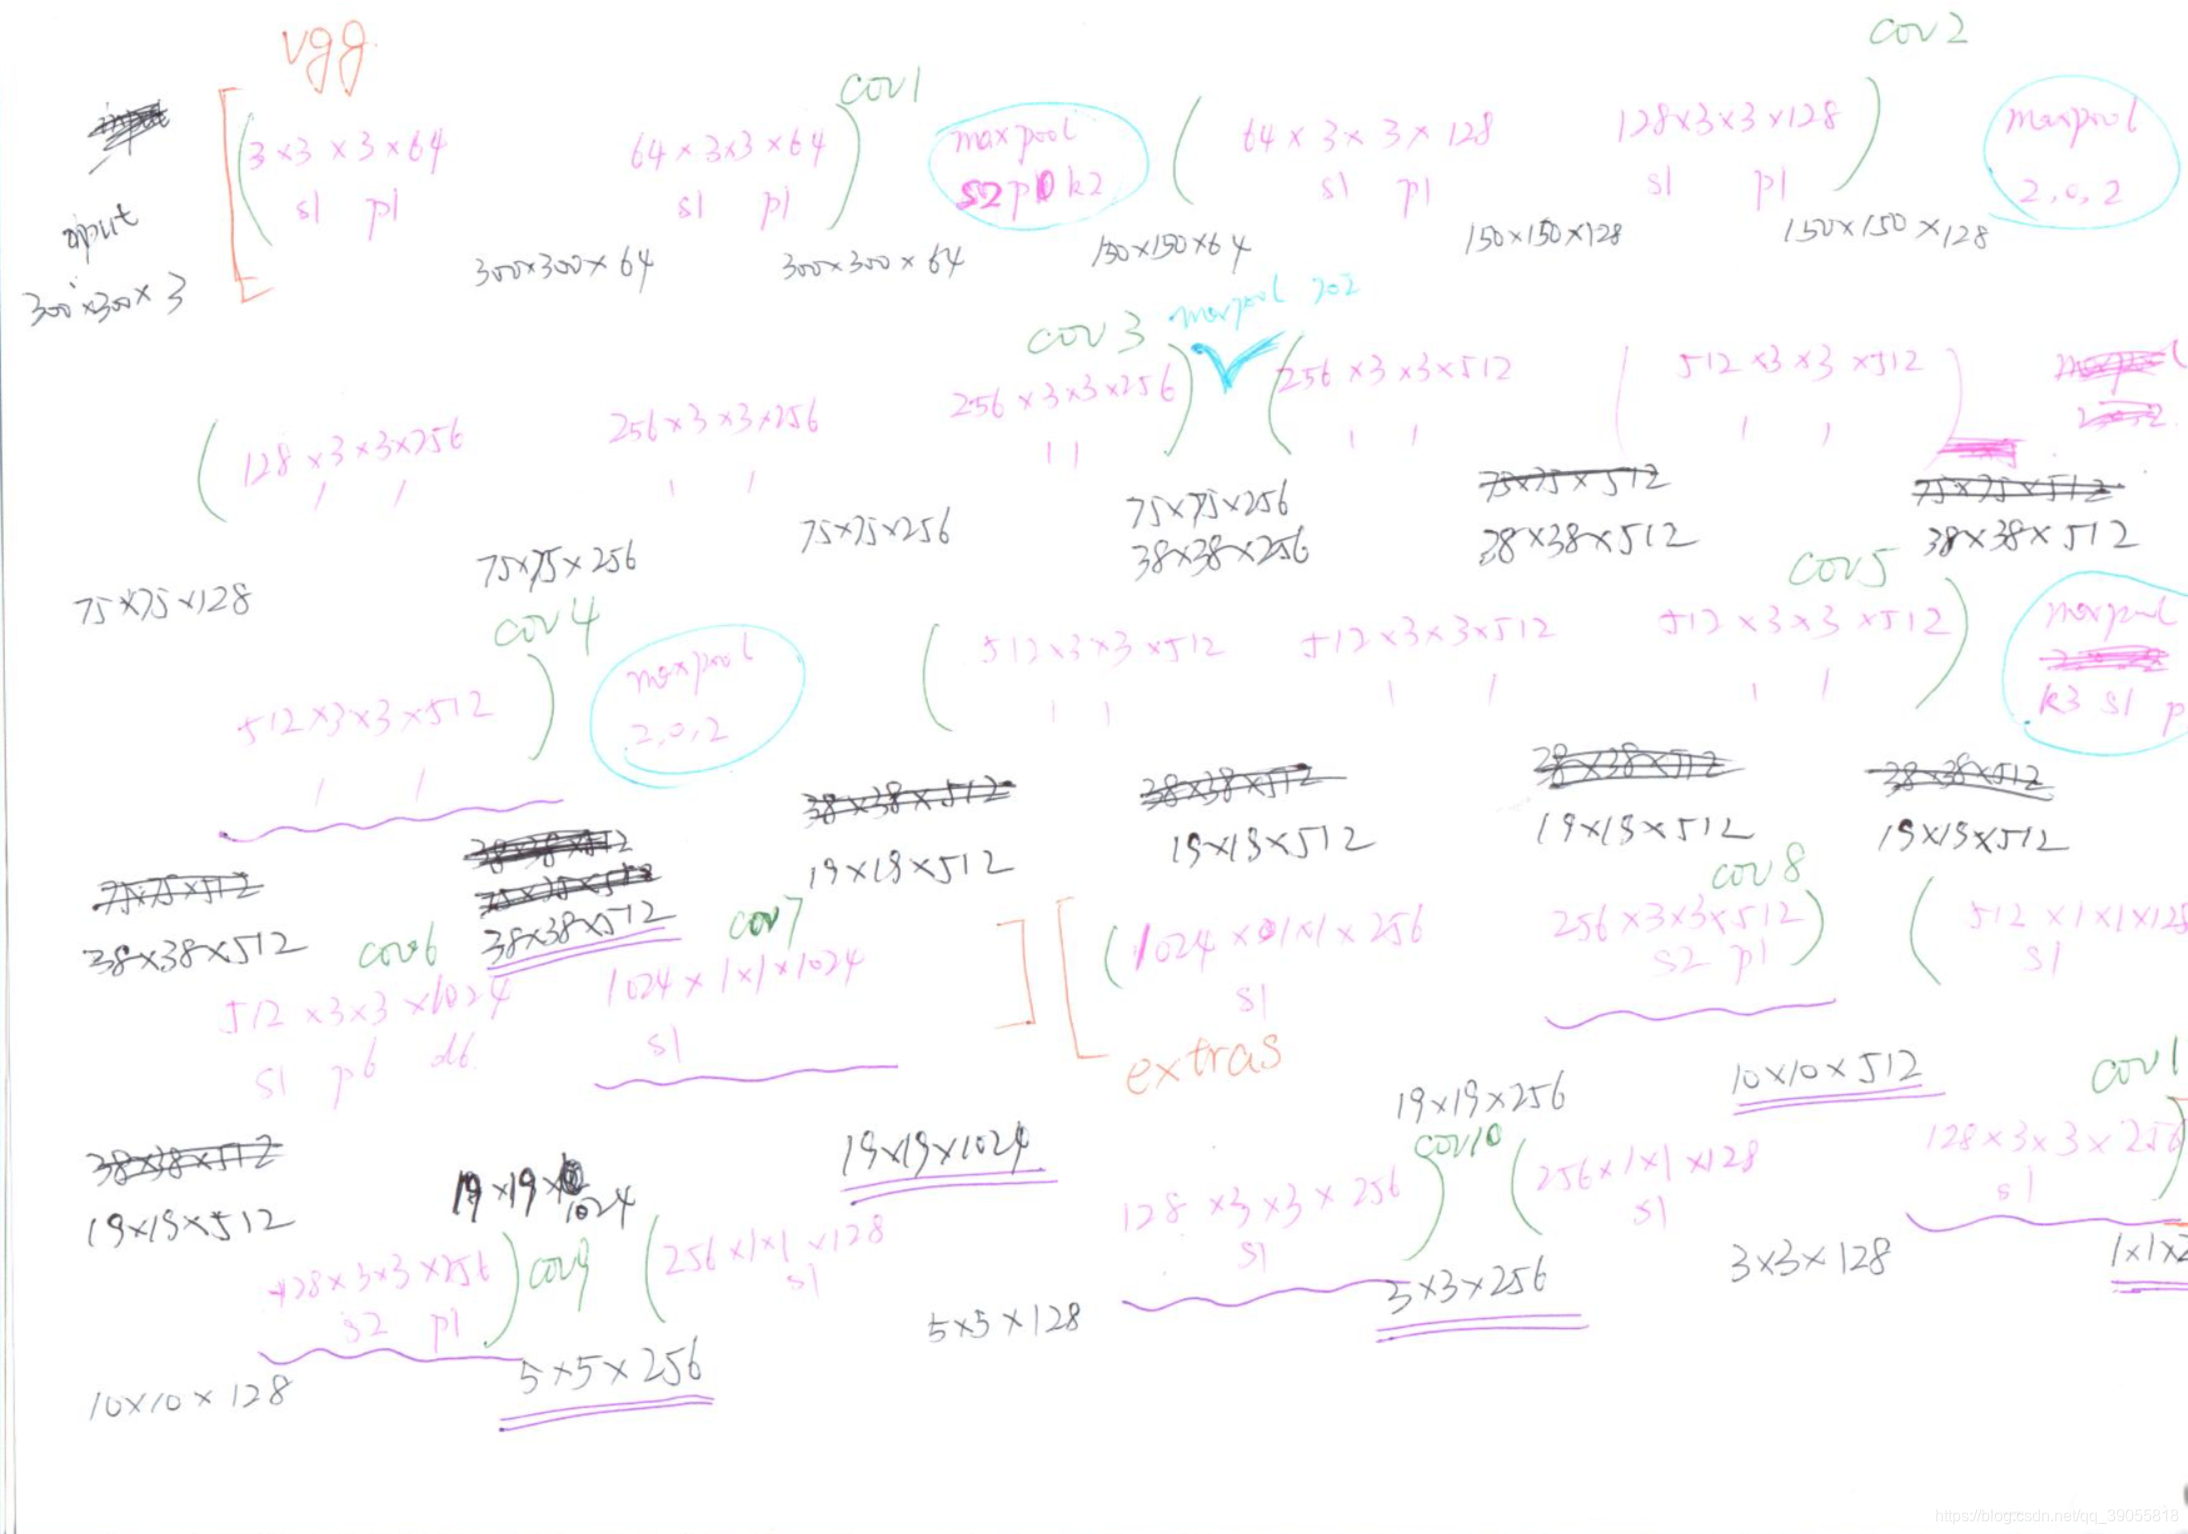 vgg
cov1
cov2
input
300×300×3
3×3×3×64
s1 p1
64×3×3×64
s1 p1
maxpool
s2 p0 k2
64×3×3×128
s1 p1
128×3×3×128
s1 p1
maxpool
2,0,2
300×300×64
300×300×64
150×150×64
150×150×128
150×150×128
cov3
maxpool 202
128×3×3×256
1 1
256×3×3×256
1 1
256×3×3×256
1 1
256×3×3×512
1 1
512×3×3×512
1 1
75×75×128
75×75×256
75×75×256
75×75×256
38×38×256
38×38×512
38×38×512
cov4
cov5
512×3×3×512
1 1
maxpool
2,0,2
512×3×3×512
1 1
512×3×3×512
1 1
512×3×3×512
1 1
maxpool
k3 s1 p
38×38×512
38×38×512
19×19×512
19×19×512
19×19×512
19×19×512
cov6
cov7
cov8
512×3×3×1024
s1 p6 d6
1024×1×1×1024
s1
1024×1×1×256
s1
extras
256×3×3×512
s2 p1
512×1×1×128
s1
19×19×512
19×19×1024
19×19×1024
19×19×256
10×10×512
cov1
128×3×3×256
s2 p1
cov9
256×1×1×128
s1
128×3×3×256
s1
cov10
256×1×1×128
s1
128×3×3×256
s1
10×10×128
5×5×256
5×5×128
3×3×256
3×3×128
1×1×2
https://blog.csdn.net/qq_39055818